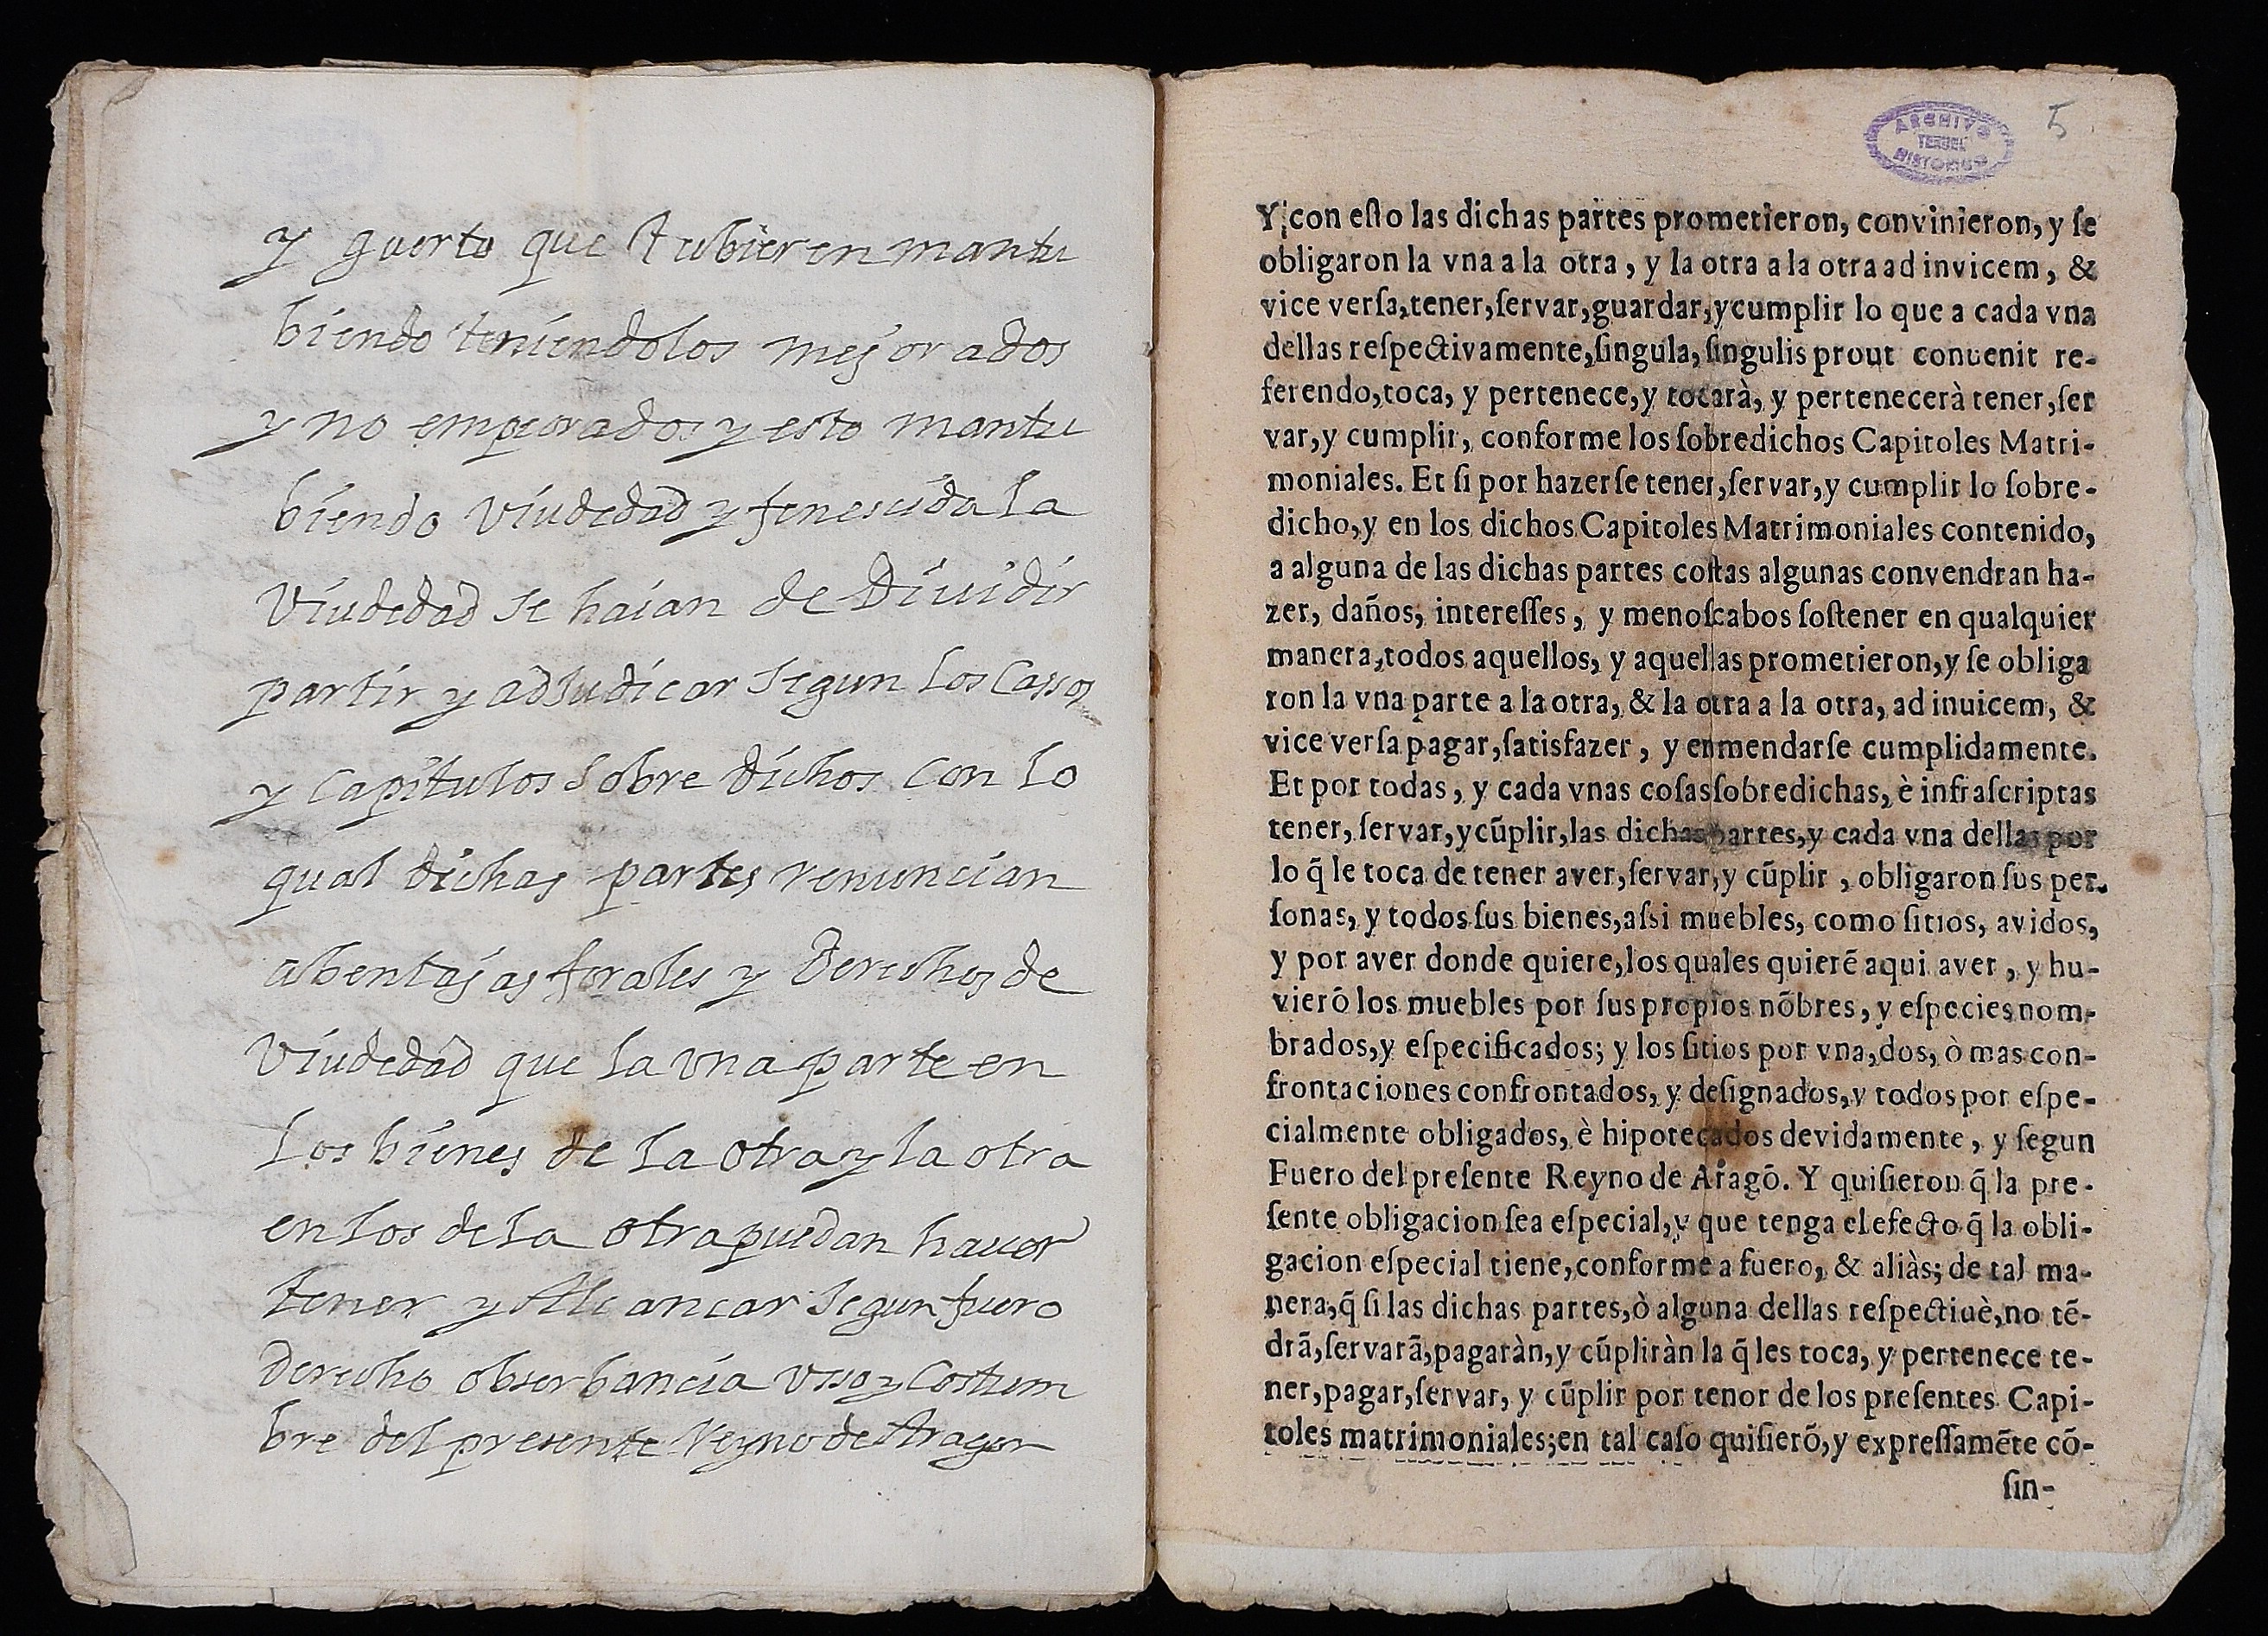 y guerto que tubieren mantu
biendo teniendolos mejorados
y no empeorados y esto mantu
biendo viudedad y fenescida la
viudedad se haian de Diuidir
partir y adjudicar segun los Cassos
y Capitulos sobre dichos con lo
qual dichas partes renuncian
abentajas forales y Derechos de
viudedad que la vna parte en
los bienes de la otra y la otra
en los de la otra puedan hauer
tener y Alcancar segun fuero
Derecho obserbancia vsso y Costum
bre del presente Reyno de Aragon
ARCHIVO
TERUEL
HISTORICO
5
Y con esto las dichas partes prometieron, convinieron, y se
obligaron la vna a la otra, y la otra a la otra ad invicem, &
vice versa, tener, servar, guardar, y cumplir lo que a cada vna
dellas respectivamente, singula, singulis prout conuenit re-
ferendo, toca, y pertenece, y tocarà, y pertenecerà tener, ser
var, y cumplir, conforme los sobredichos Capitoles Matri-
moniales. Et si por hazerse tener, servar, y cumplir lo sobre-
dicho, y en los dichos Capitoles Matrimoniales contenido,
a alguna de las dichas partes costas algunas convendran ha-
zer, daños, interesses, y menoscabos sostener en qualquier
manera, todos aquellos, y aquellas prometieron, y se obliga
ron la vna parte a la otra, & la otra a la otra, ad inuicem, &
vice versa pagar, satisfazer, y enmendarse cumplidamente.
Et por todas, y cada vnas cosas sobredichas, è infrascriptas
tener, servar, y cũplir, las dichas partes, y cada vna dellas por
lo q̃ le toca de tener aver, servar, y cũplir, obligaron sus per-
sonas, y todos sus bienes, assi muebles, como sitios, avidos,
y por aver donde quiere, los quales quierẽ aqui aver, y hu-
vierõ los muebles por sus propios nõbres, y especies nom-
brados, y especificados; y los sitios por vna, dos, ò mas con-
frontaciones confrontados, y designados, y todos por espe-
cialmente obligados, è hipotecados devidamente, y segun
Fuero del presente Reyno de Aragõ. Y quisieron q̃ la pre-
sente obligacion sea especial, y que tenga el efecto q̃ la obli-
gacion especial tiene, conforme a fuero, & aliàs; de tal ma-
nera, q̃ si las dichas partes, ò alguna dellas respectiuè, no tẽ-
drã, servarã, pagaràn, y cũpliràn la q̃ les toca, y pertenece te-
ner, pagar, servar, y cũplir por tenor de los presentes Capi-
toles matrimoniales; en tal caso quisierõ, y expressamẽte cõ-
sin-